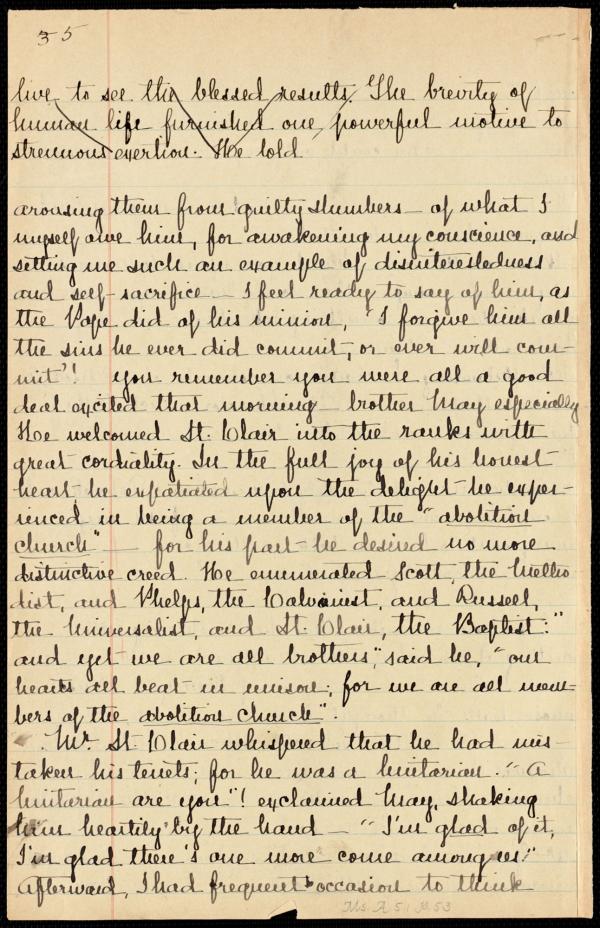 35
live to see the blessed results. The brevity of
human life furnished one powerful motive to
strenuous exertion. He told
arousing them from guilty slumbers — of what I
myself owe him, for awakening my conscience, and
setting me such an example of disinterestedness
and self-sacrifice — I feel ready to say of him, as
the Pope did of his minion, "I forgive him all
the sins he ever did commit, or ever will com-
mit"! You remember you were all a good
deal excited that morning — brother May especially
He welcomed St. Clair into the ranks with
great cordiality. In the full joy of his honest
heart he expatiated upon the delight he exper-
ienced in being a member of the "abolition
church" — for his part he desired no more
distinctive creed. He enumerated Scott, the Metho
dist, and Phelps, the Calvinist, and Russell,
the Universalist, and St. Clair, the Baptist:"
and yet we are all brothers," said he, "our
hearts all beat in unison; for we are all mem-
bers of the abolition church".
Mr. St. Clair whispered that he had mis-
taken his tenets; for he was a Unitarian. "A
Unitarian are you"! exclaimed May, shaking
him heartily by the hand — "I'm glad of it,
I'm glad there's one more come among us!"
Afterward, I had frequent occasion to think